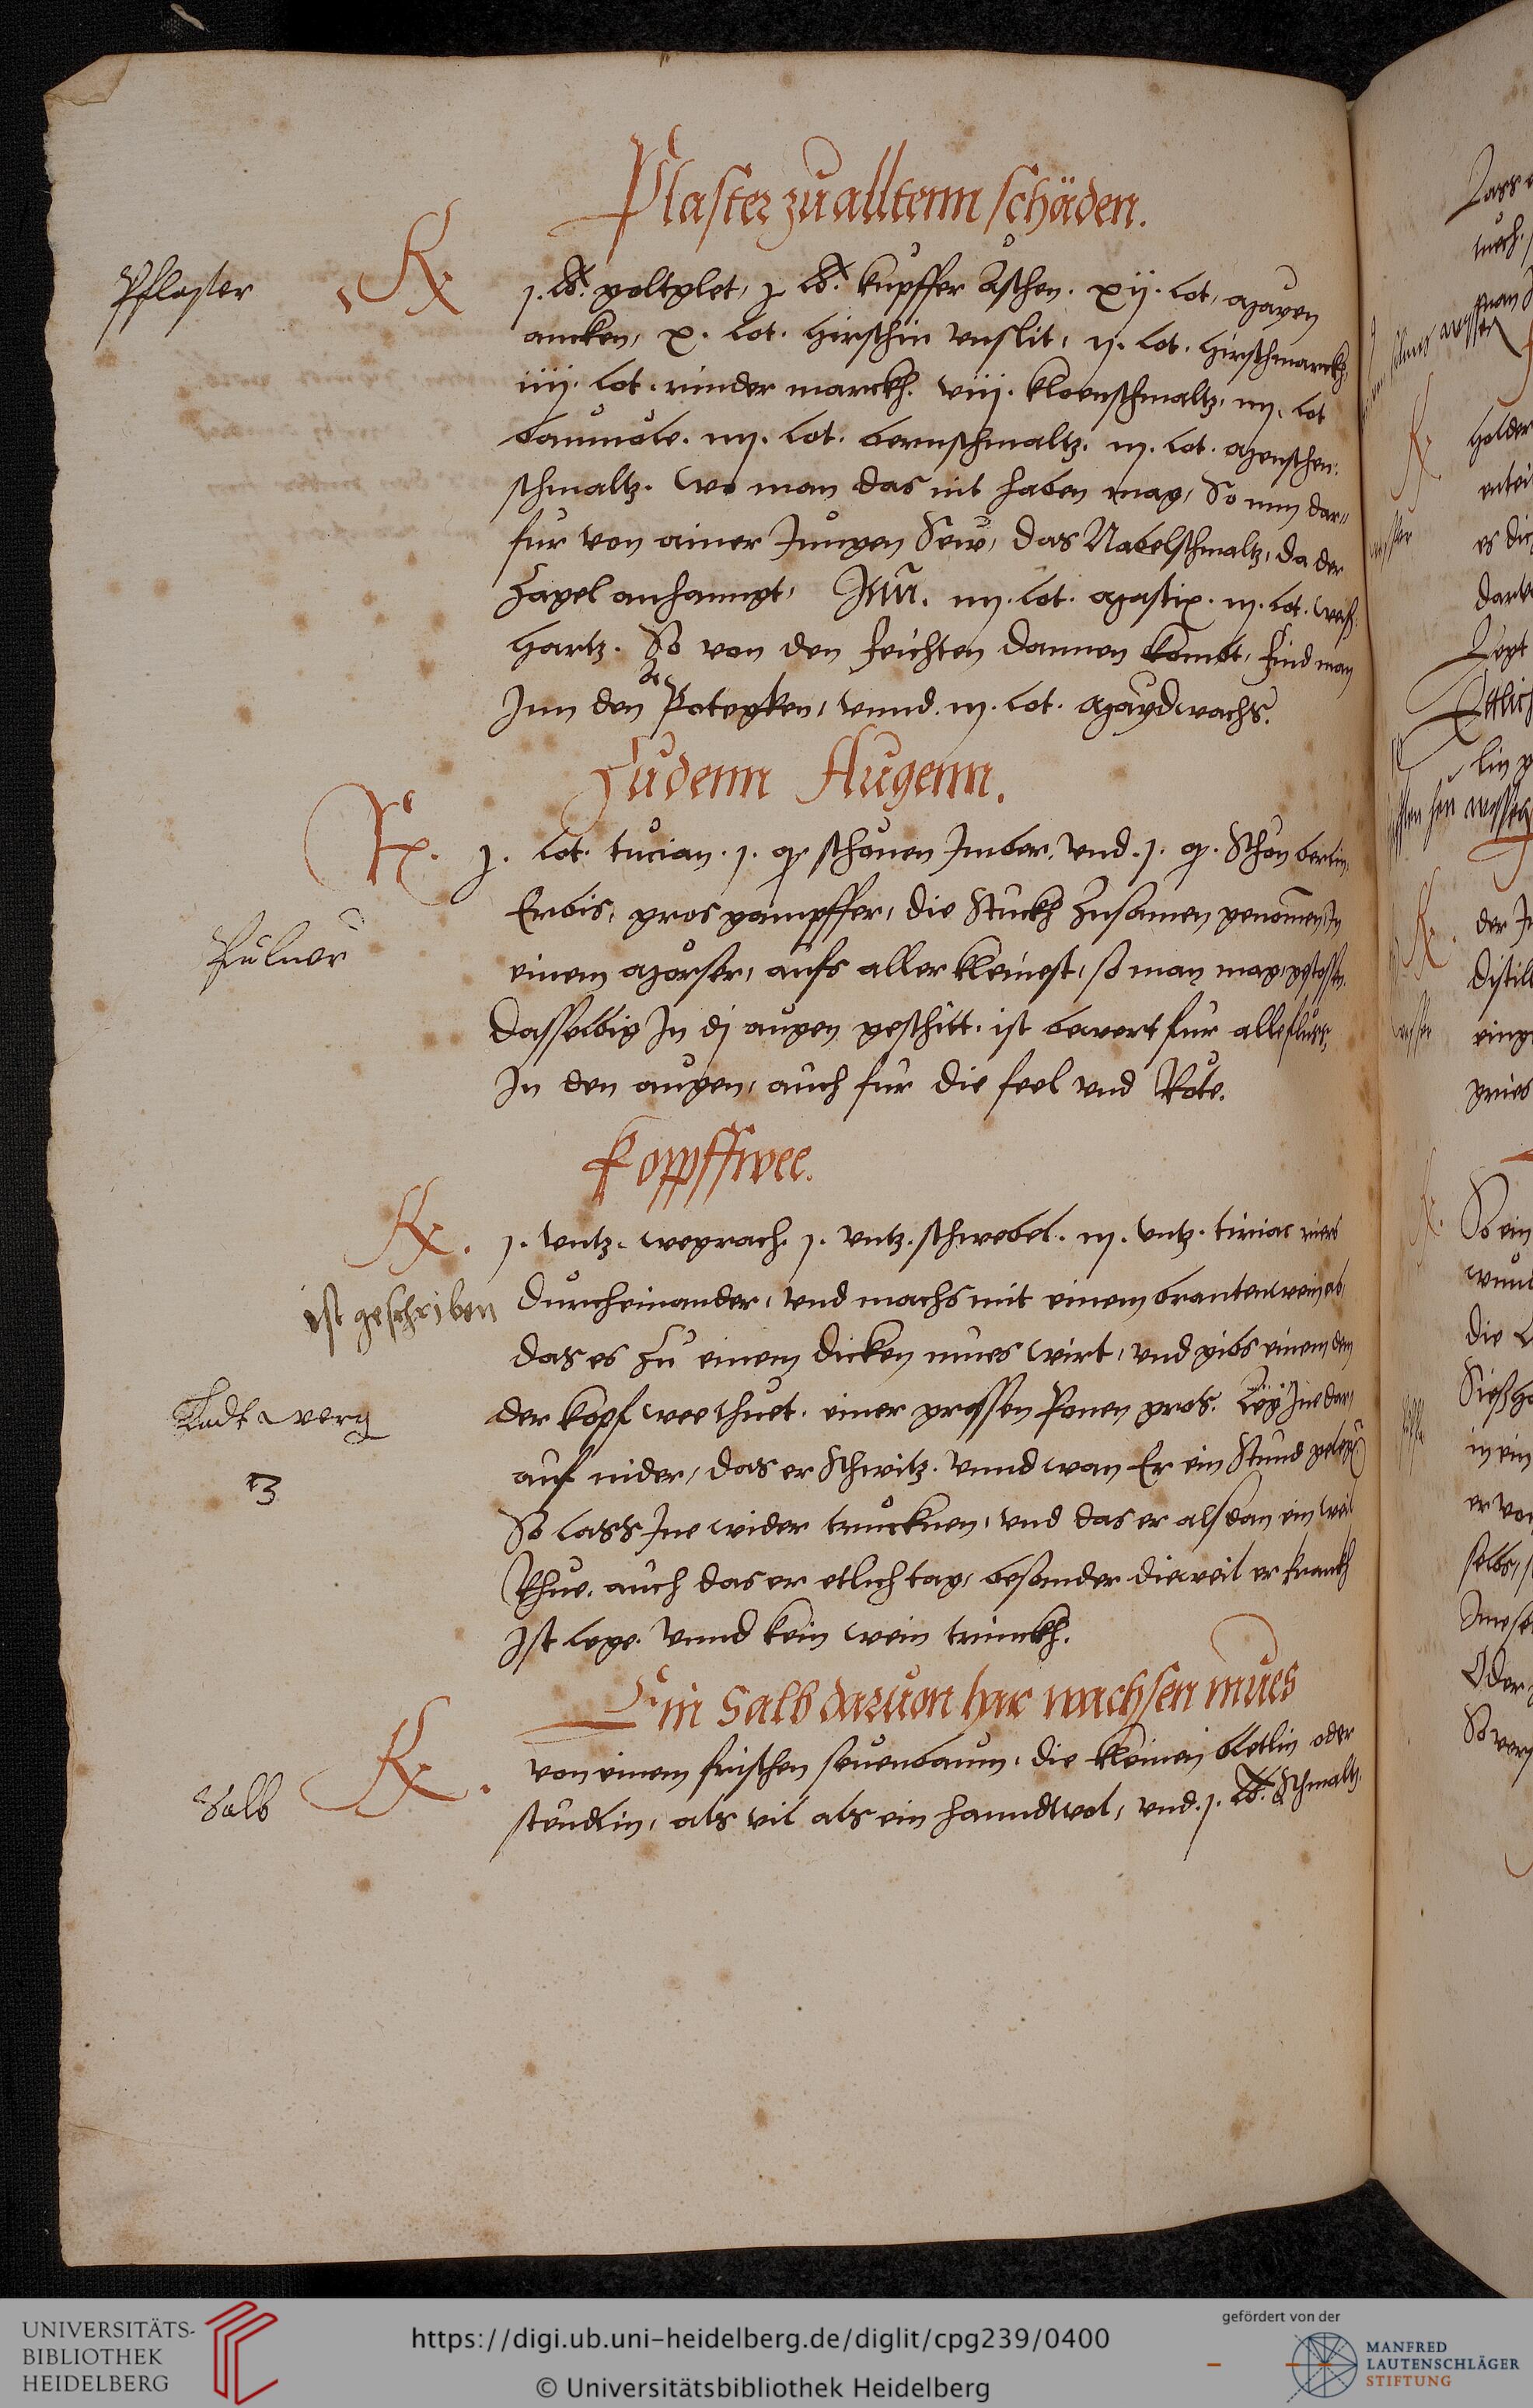 Plaster zu alltenn schäden.
Pflaster
Rx j. lb. goltglet, j lb. kupffer Aschen. xij. lot, Mayen
ancken, x. lot. Hirschin vnslit, ij. lot. Hirschmarckh,
iiij. lot. rinder marckh. viij. schmaltz, iij. lot
baumöle. iij. lot. bernschmaltz. iij. lot. Menschen:
schmaltz. Wo man das nit haben mag, So nim dar=
fur von ainer Jungen Sew, das Nabelschmaltz, da der
Zagel anhanngt, Item. iij. lot. Mastix. iij. lot. weiß
Hartz. So von den feichten dannen kombt, find man
Jnn den Apotegken, vnnd. iij. lot. Maydwachs.
Zu denn Augenn.
Rx. j. lot. tucian. j. q. schönen Jmber. Vnd. j. q. Schön berlin,
Erbis, gros gampffer, die Stuckh Zusamen genomen, Jn
Puluer
einem Mörser, aufs aller kleinest, so man mag, gestossen.
Dasselbig Jn dj augen geschitt. ist bewert fur alle fluss,
Jn den augen, auch fur die feel vnd Röte.
Kopffwee.
Rx. j. vntz. weyrach. j. vntz. schwebel. iij. vntz. tiriac
ist geschriben
durcheinander, vnd machs mit einem brantenwein ab,
das es zu einem dicken mues wirt, vnd gibs einem dem
Ladtwerg
der kopf wee thuet. einer grossen Ponen gros. Leg Jne dar,
auf nider, das er Schwitz. vnnd wan Er ein Stund gelegen
3
So lass Jne wider trucknen, vnd das er alsdan ein weil
Rhue, auch das er etlich tag, besonder dieweil er kranckh
Jst lege. Vnnd kein wein trinckh.
Ein Salb daruon har wachsen mues
Salb
Rx. von einem frischen seuenbaum. die kleinen bletlin oder
steudlin, als vil als ein hanndtvol, vnd. j. lb. Schmaltz.
UNIVERSITÄTS-
BIBLIOTHEK
HEIDELBERG
https://digi.ub.uni-heidelberg.de/diglit/cpg239/0400
© Universitätsbibliothek Heidelberg
gefördert von der
MANFRED
LAUTENSCHLÄGER
STIFTUNG